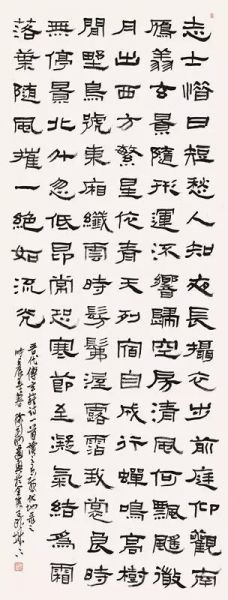 志士惜日短愁人知夜長攝衣步前庭仰觀南
鴈翔玄景隨形運流響歸空房清風何飄颻微
月出西方繁星依青天列宿自成行蟬鳴高樹
間野鳥號東廂纖雲時髣髴渥露霑我裳良時
無停景北斗忽低昂常恐寒節至凝氣結為霜
落葉隨風摧一絕如流光
晉代傅玄雜詩一首